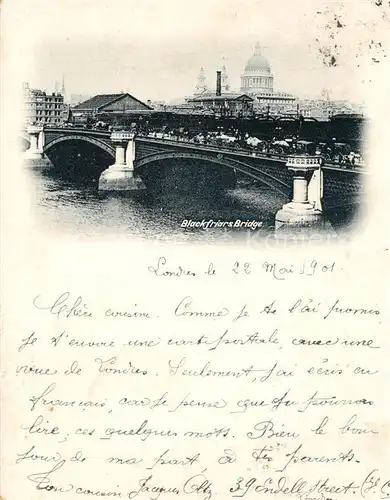 Blackfriars Bridge
Londres le 22 Mai 1901.
Chère cousine. Comme je te l'ai promis
je t'envoie une carte postale, avec une
vue de Londres. Seulement j'ai écris en
français, car je pense que tu pourras
lire, ces quelques mots. Bien le bon
jour de ma part à tes parents.
Ton cousin Jacques 39 Endell Street